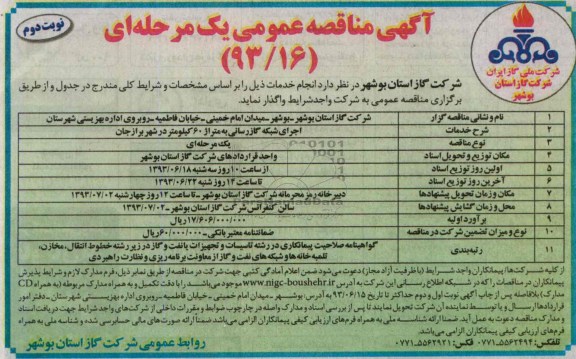 آگهی مناقصه عمومی یک مرحله‌ای
(۹۳/۱۶)
نوبت دوم
شرکت ملی گاز ایران
شرکت گاز استان
بوشهر
شرکت گاز استان بوشهر در نظر دارد انجام خدمات ذیل را بر اساس مشخصات و شرایط کلی مندرج در جدول و از طریق
برگزاری مناقصه عمومی به شرکت واجد شرایط واگذار نماید.
۱ نام و نشانی مناقصه گزار شرکت گاز استان بوشهر ـ بوشهر ـ میدان امام خمینی ـ خیابان فاطمیه ـ روبروی اداره بهزیستی شهرستان
۲ شرح خدمات اجرای شبکه گازرسانی به متراژ ۶۰ کیلومتر در شهر برازجان
۳ نوع مناقصه یک مرحله‌ای
۴ مکان توزیع و تحویل اسناد واحد قراردادهای شرکت گاز استان بوشهر
۵ اولین روز توزیع اسناد از ساعت ۱۰ روز سه شنبه ۱۳۹۳/۰۶/۱۸
۶ آخرین روز توزیع اسناد تا ساعت ۱۴ روز شنبه ۱۳۹۳/۰۶/۲۲
۷ مکان و زمان تحویل پیشنهادها دبیرخانه رمز محرمانه شرکت گاز استان بوشهر ـ تا ساعت ۱۲ روز چهارشنبه ۱۳۹۳/۰۷/۰۲
۸ محل و زمان گشایش پیشنهادها سالن کنفرانس شرکت گاز استان بوشهر ـ ۱۳۹۳/۰۷/۰۲
۹ برآورد اولیه ۱۷/۶۰۶/۰۰۰/۰۰۰ ریال
۱۰ نوع و میزان تضمین شرکت در مناقصه ضمانتنامه معتبر بانکی ـ ۶۰۰/۰۰۰/۰۰۰ ریال
۱۱ رتبه‌بندی گواهینامه صلاحیت پیمانکاری در رشته تاسیسات و تجهیزات یا نفت و گاز در زیر رشته خطوط انتقال، مخازن،
تلمبه خانه‌ها و شبکه های نفت و گاز از معاونت برنامه ریزی و نظارت راهبردی
از کلیه شرکت‌ها/ پیمانکاران واجد شرایط (با ظرفیت آزاد مجاز) دعوت می‌شود ضمن اعلام آمادگی کتبی جهت شرکت در مناقصه از طریق نمابر ذیل، فرم مدارک لازم و شرایط پذیرش
پیمانکاران در مناقصات را که در شبکه اطلاع رسانی این شرکت به آدرس www.nigc-boushehr.ir موجود می‌باشد را با دقت تکمیل و به همراه مدارک مربوطه (به همراه CD
مدارک) بلافاصله پس از چاپ آگهی نوبت اول و دوم حداکثر تا تاریخ ۹۳/۰۶/۱۵ به آدرس: بوشهر ـ میدان امام خمینی ـ خیابان فاطمیه ـ روبروی اداره بهزیستی شهرستان ـ دفتر امور
قراردادها ارسال و یا توسط نماینده آن شرکت تحویل نمایند تا پس از بررسی اسناد و مدارک واصله در چارچوب ضوابط و مقررات داخلی از شرکت‌های واجد شرایط جهت دریافت اسناد
و مدارک مناقصه دعوت به عمل آید. ضمنا ارائه شناسه ملی به همراه فرم‌های ارزیابی کیفی پیمانکاران الزامی می‌باشد ضمنا ارائه صورت های مالی حسابرسی شده و شناسه ملی به همراه
فرم‌های ارزیابی کیفی پیمانکاران الزامی می‌باشد.
تلفکس: ۵۵۶۲۴۹۴-۰۷۷۱ فکس: ۵۵۶۴۹۲۱-۰۷۷۱
روابط عمومی شرکت گاز استان بوشهر